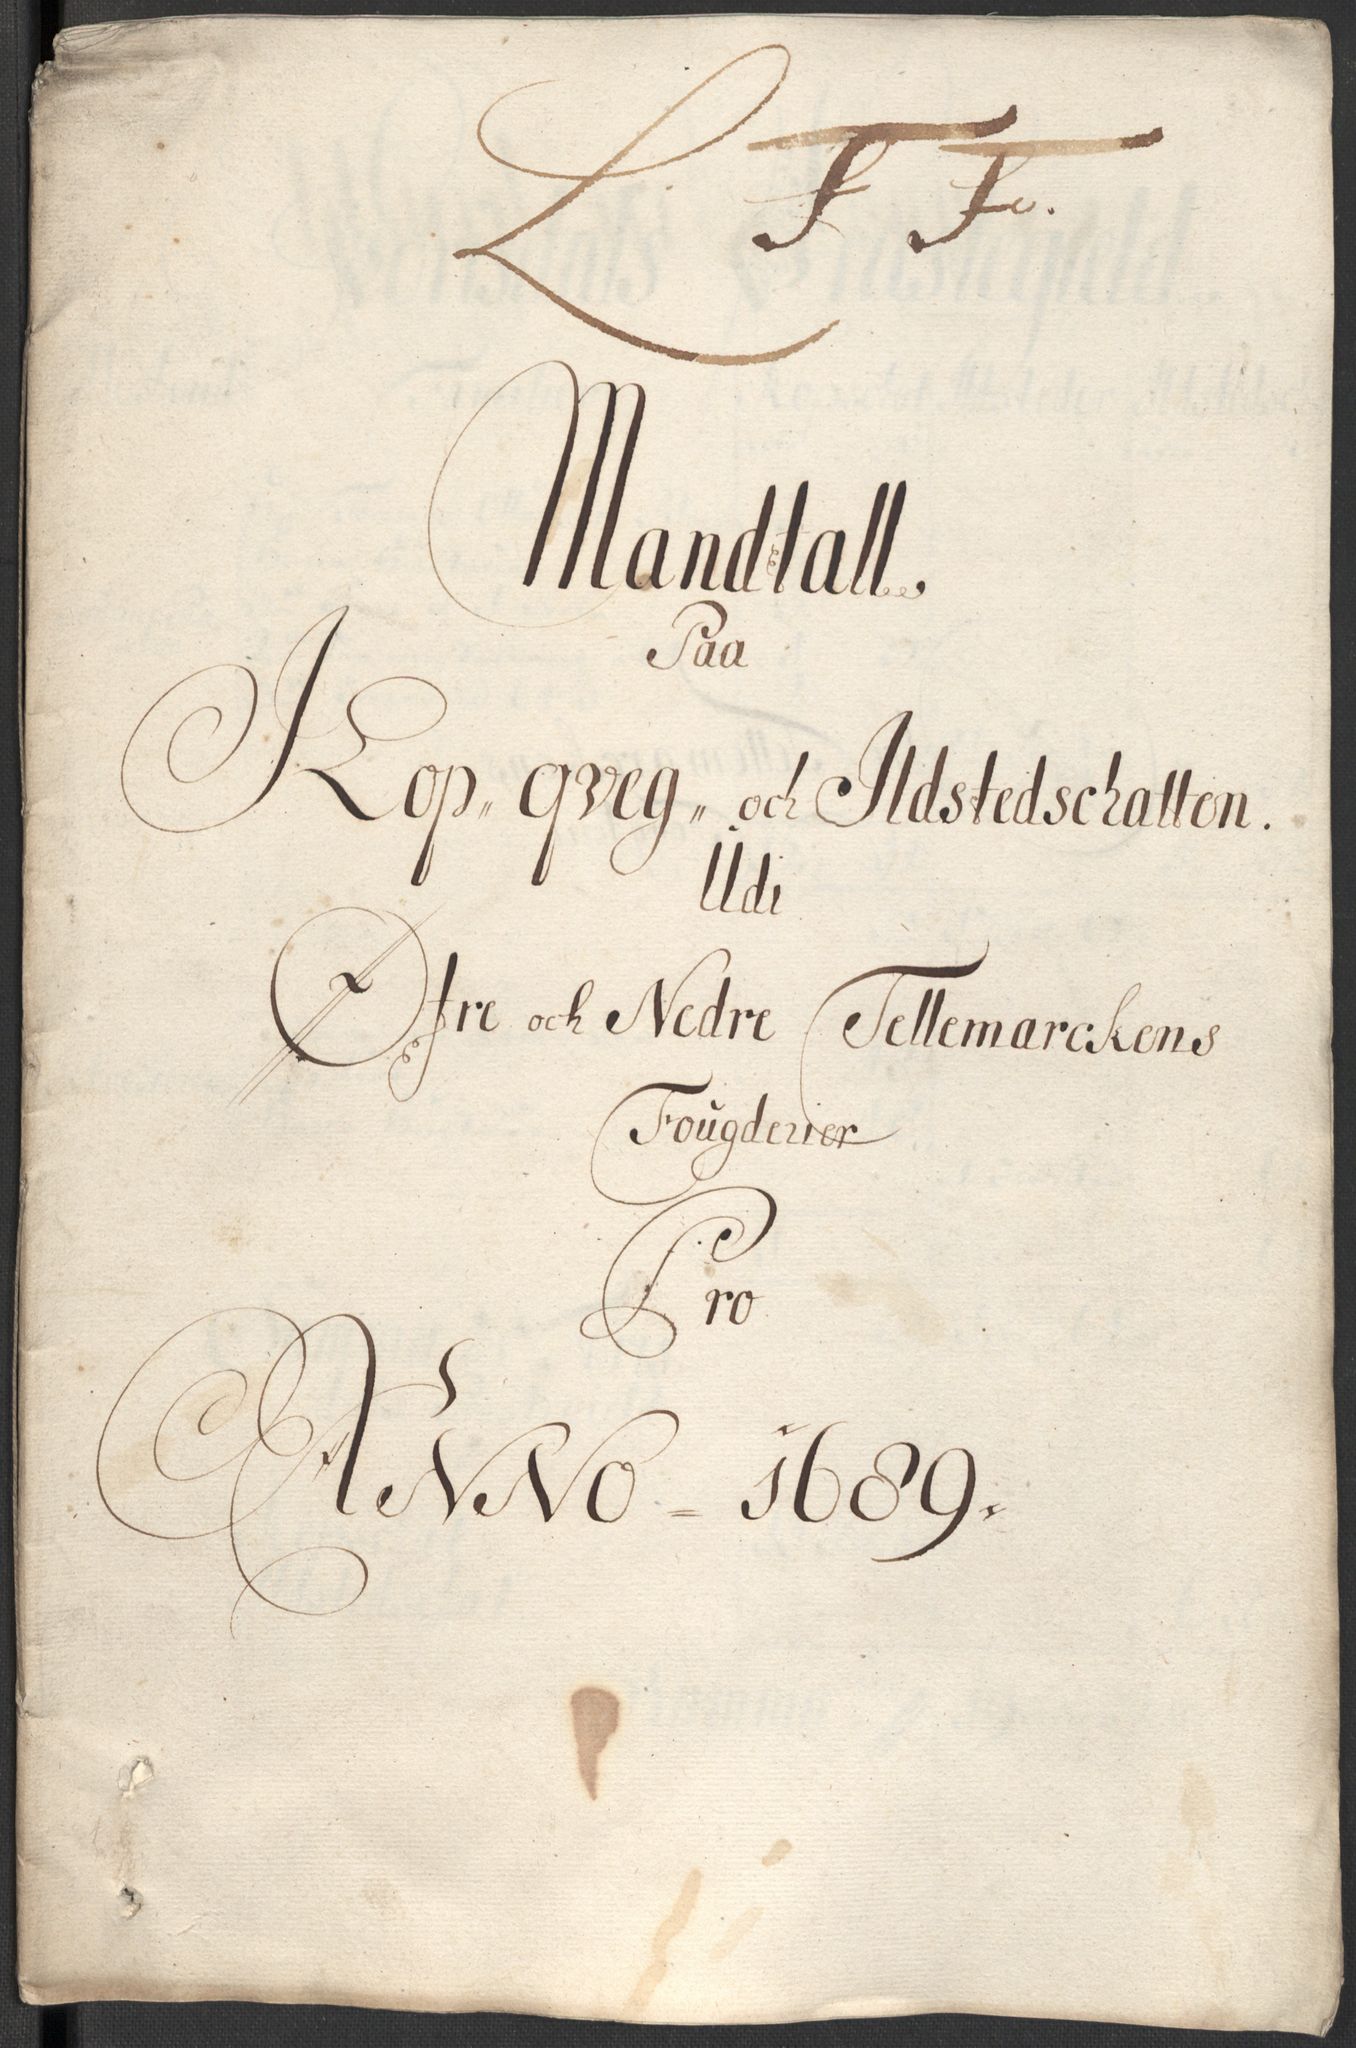 L FF.
Mandtall.
Paa
Kop„ qveg„ och Ildstedschatten.
Udi
Øfre och Nedre Tellemarckens
Foŭgderier
Pro
ANNO = 1689.